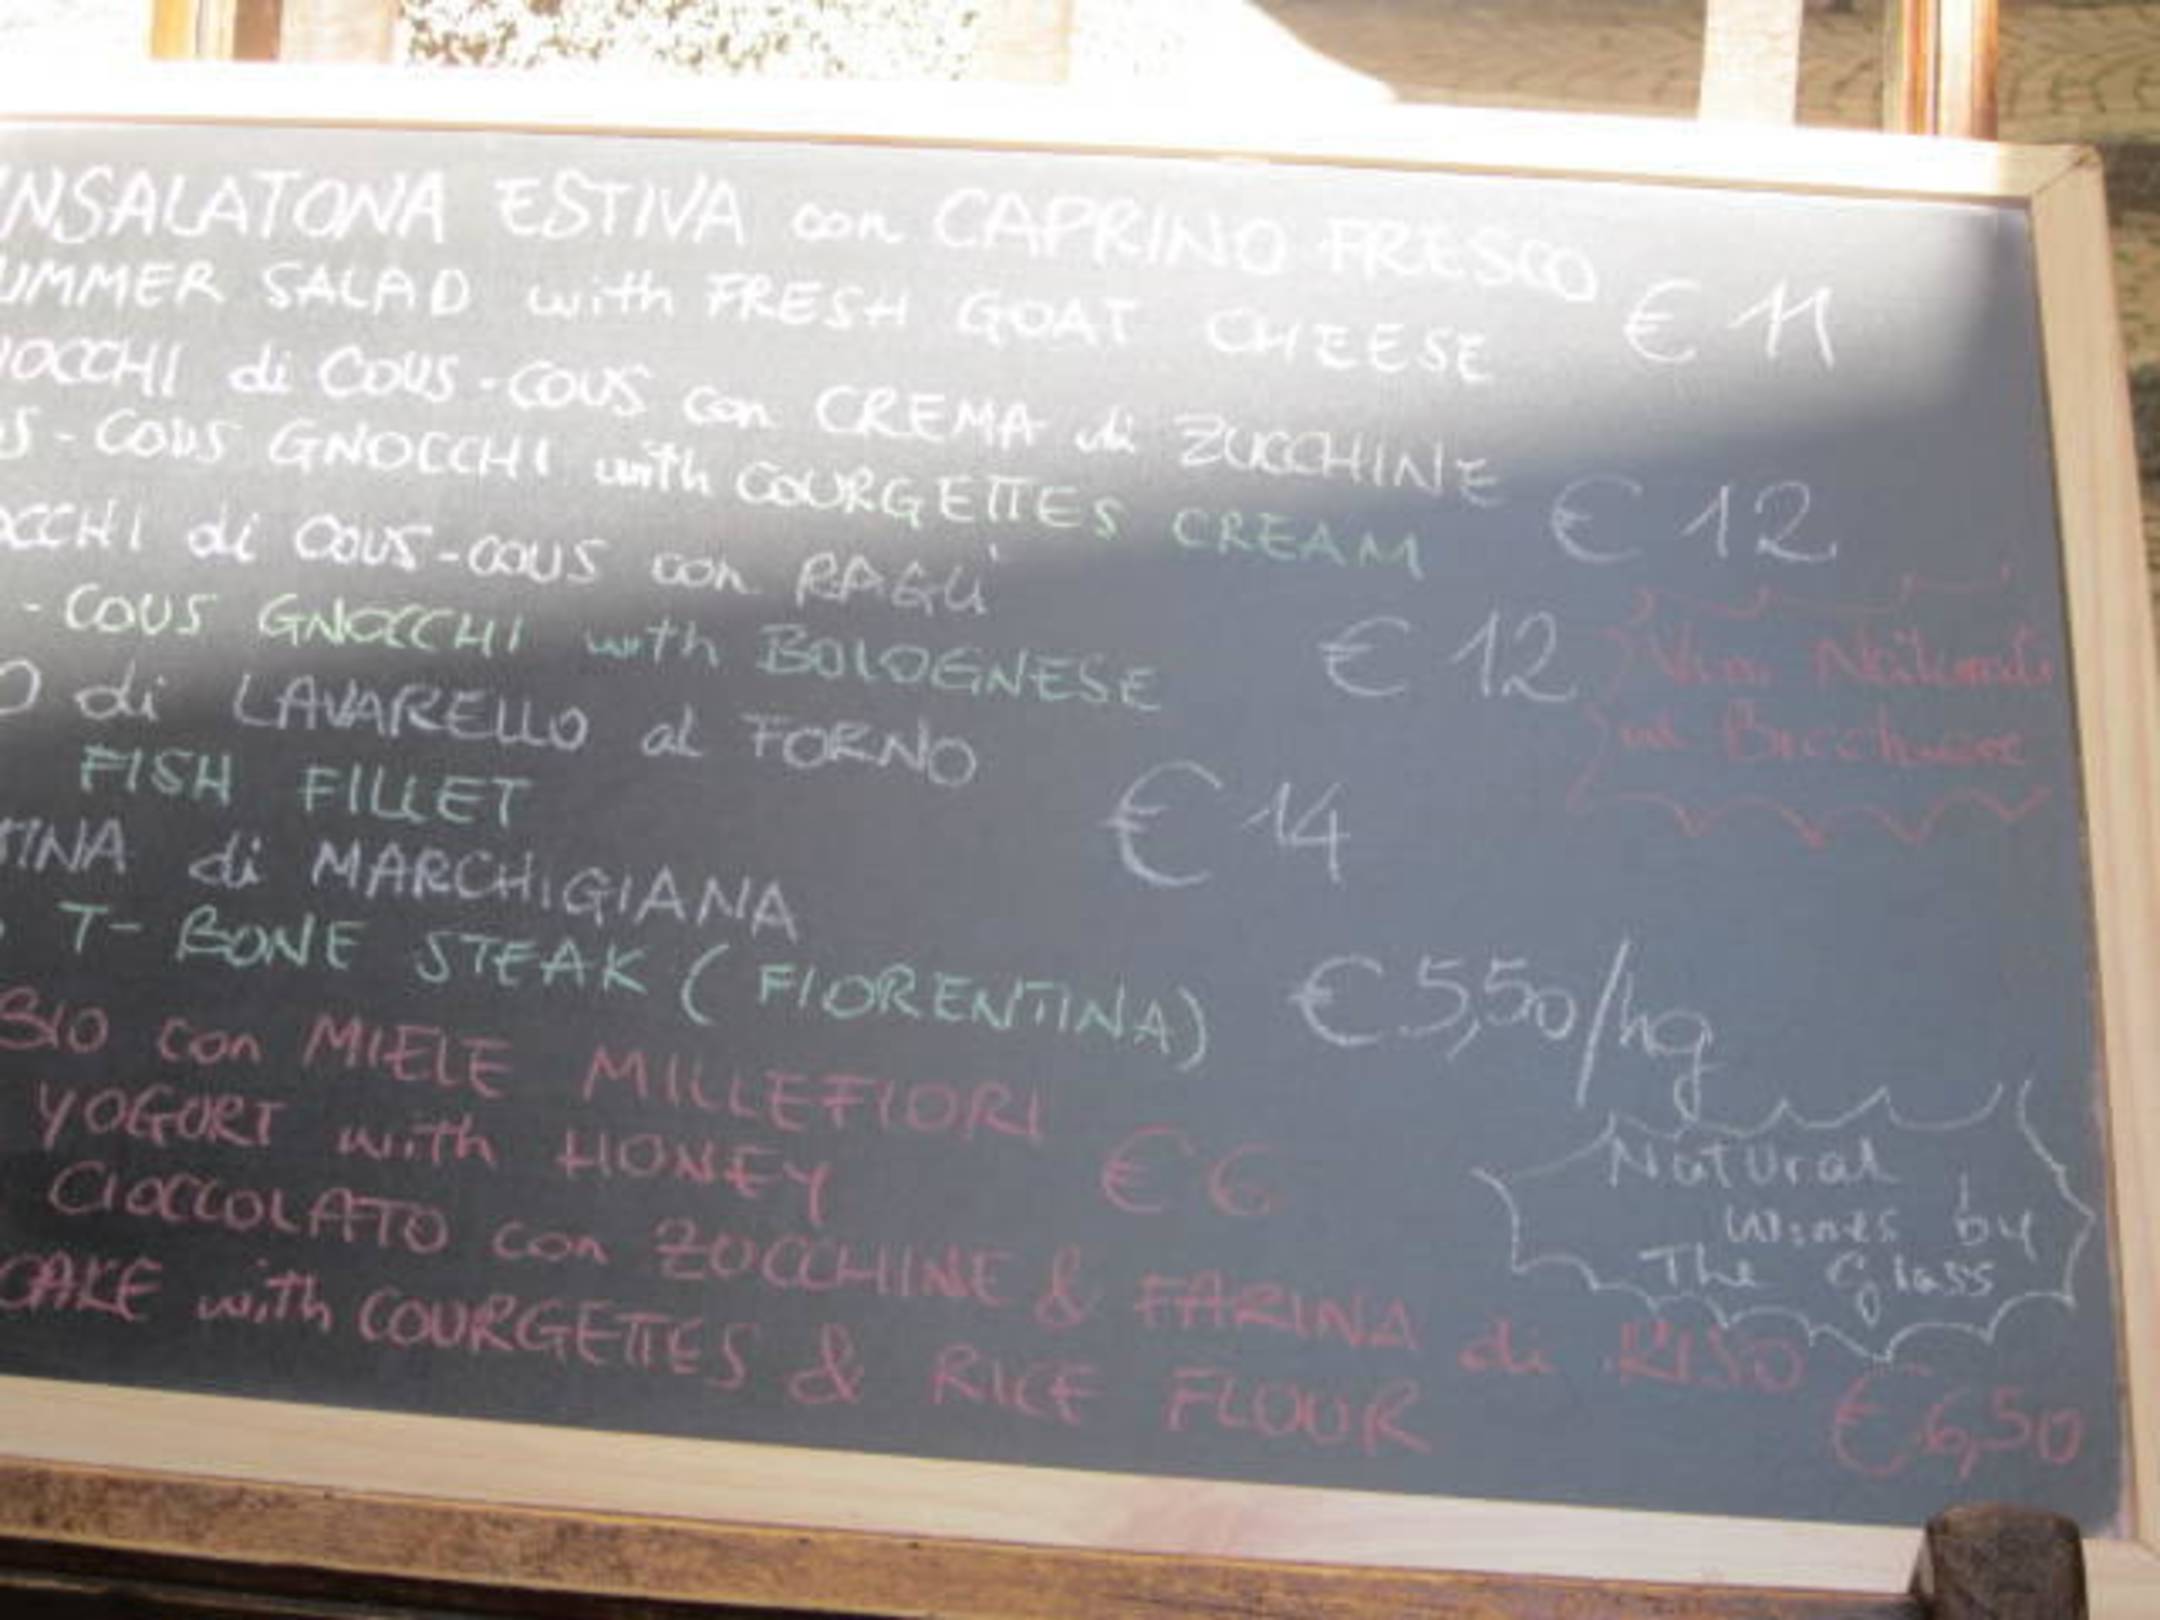 INSALATONA ESTIVA con CAPRINO FRESCO
UMMER SALAD with FRESH GOAT CHEESE € 11
NOCCHI di COUS-COUS con CREMA di ZUCCHINE
US-COUS GNOCCHI with COURGETTES CREAM € 12
OCCHI di COUS-COUS con RAGU'
-COUS GNOCCHI with BOLOGNESE € 12
O di LAVARELLO al FORNO
FISH FILLET € 14
TINA di MARCHIGIANA
T-BONE STEAK (FIORENTINA) € 5,50/hg
BIO con MIELE MILLEFIORI
YOGURT with HONEY € 6
CIOCCOLATO con ZUCCHINE & FARINA di RISO
CAKE with COURGETTES & RICE FLOUR € 6,50
Vini Naturali
Natural
Wines by
The Glass